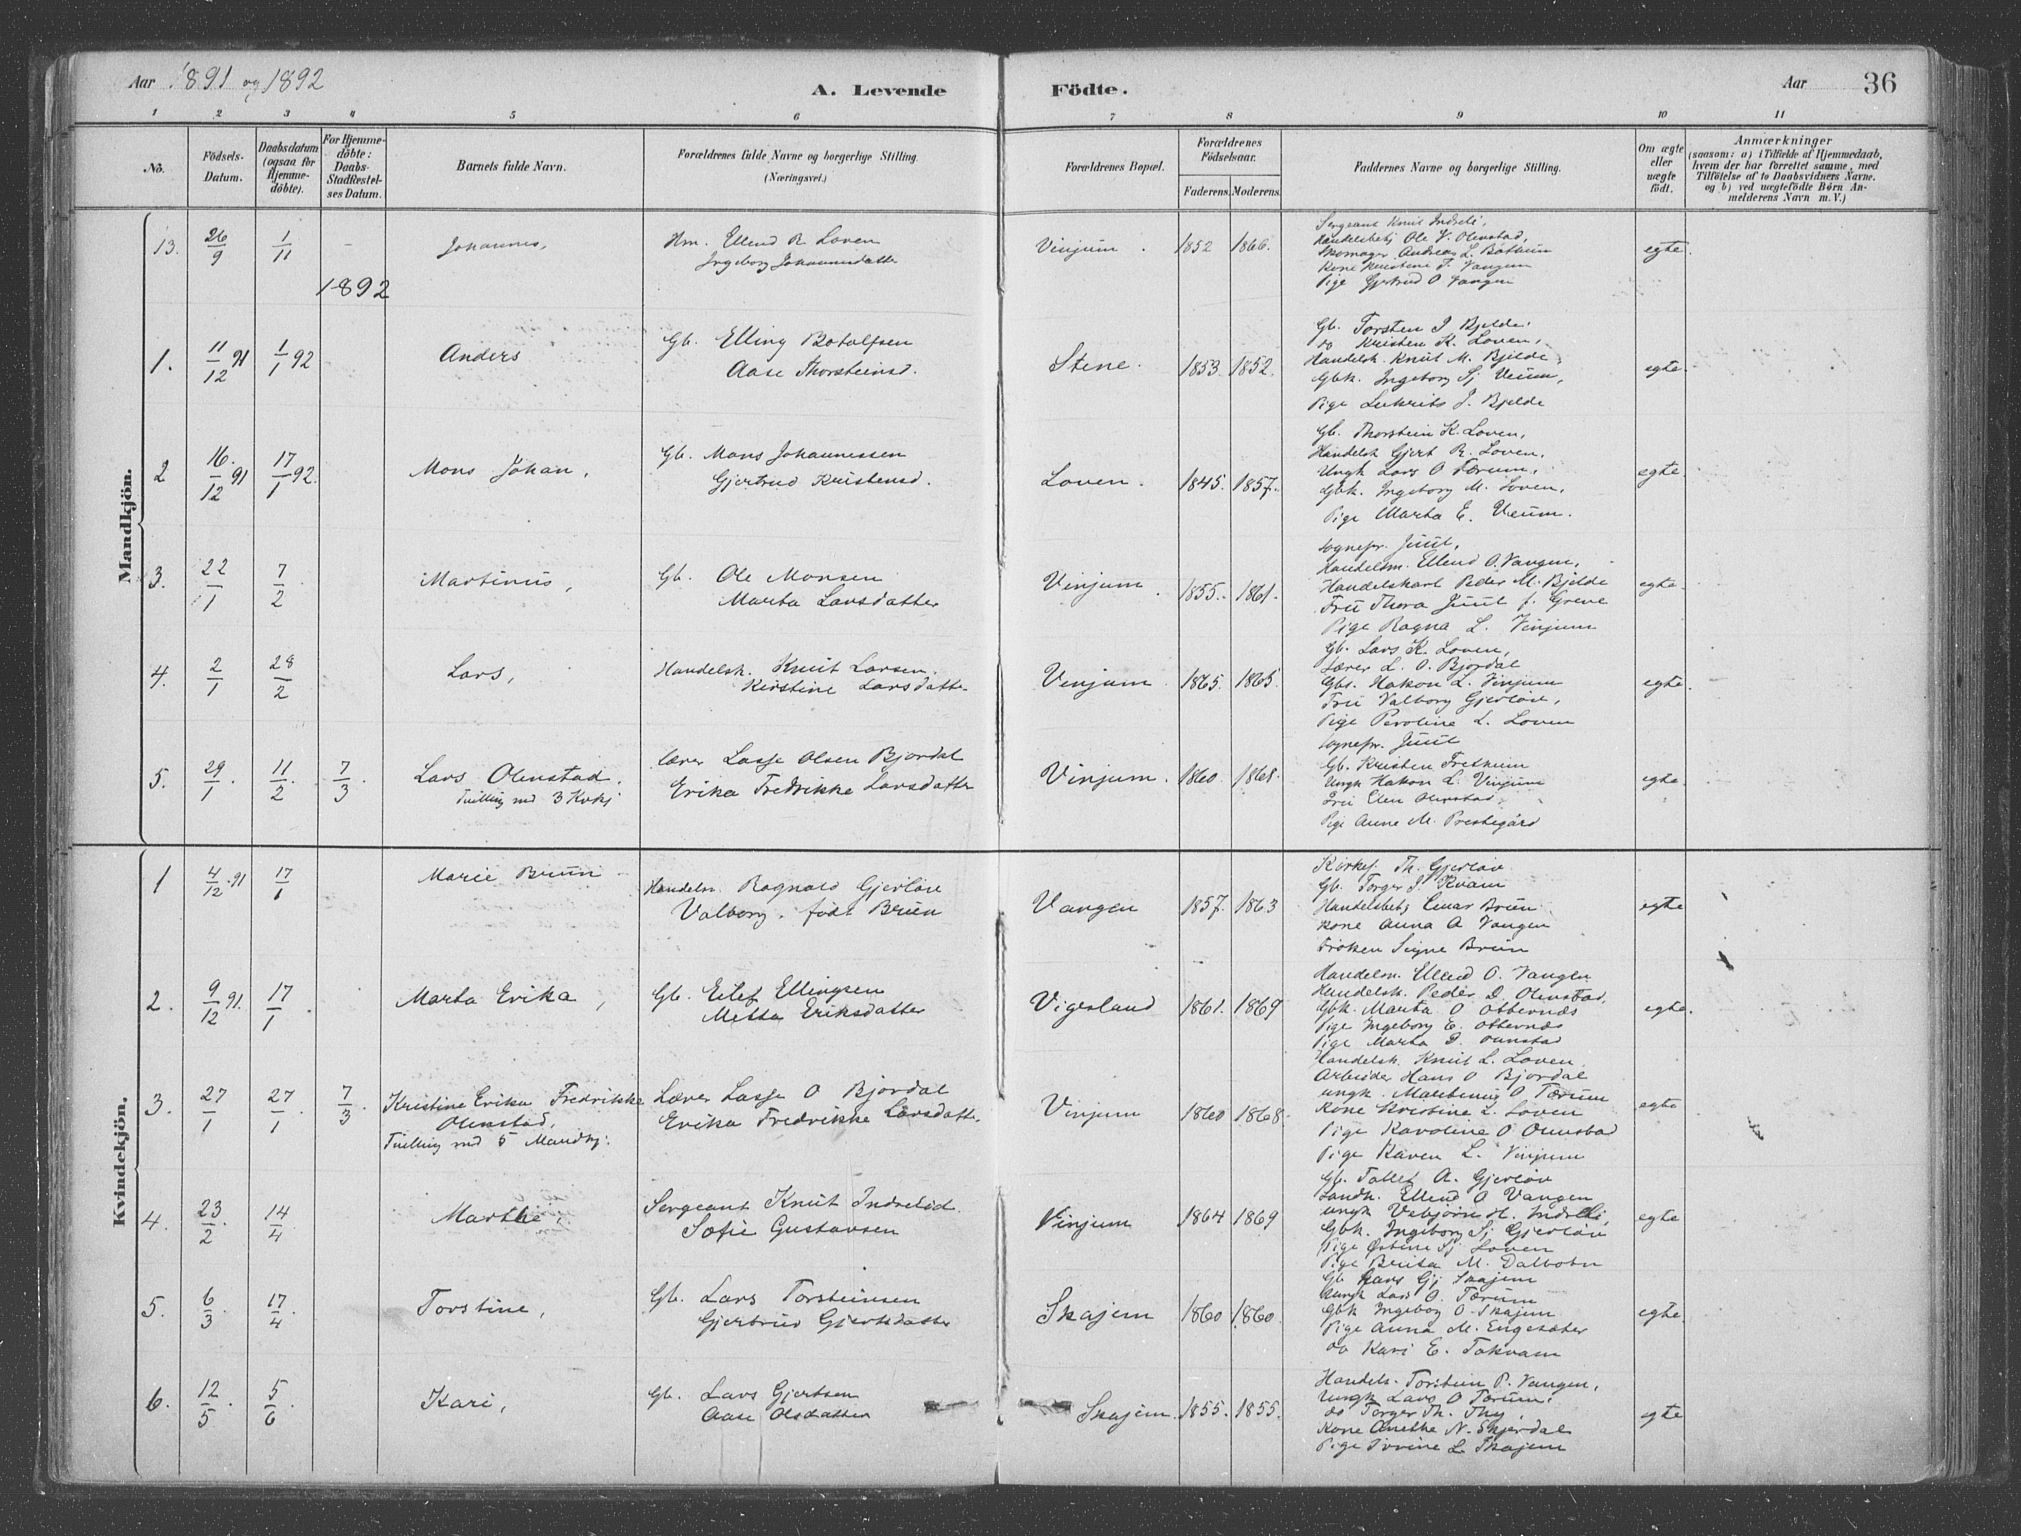 Aar 1891 og 1892
A. Levende Födte.
Aar 36
1 2 3 4 5 6 7 8 9 10 11
No.
Födsels-Datum.
Daabsdatum (ogsaa for Hjemme-döbte).
For Hjemme-döbte: Daabs-Stadfestel-ses Datum.
Barnets fulde Navn.
Forældrenes fulde Navne og borgerlige Stilling. (Næringsvei.)
Forældrenes Bopæl.
Forældrenes Födselsaar.
Faderens. Moderens.
Faddernes Navne og borgerlige Stilling.
Om ægte eller uægte födt.
Anmærkninger
(saasom: a) i Tilfælde af Hjemmedaab, hvem der har forrettet samme, med Tilföielse af to Daabsvidners Navne. og b) ved uægtefödte Børn An-melderens Navn m. V.)
Mandkjön.
13. 26/9 1/11 - Johannes,
Hm. Ellend R. Loven
Ingeborg Johannesdatter
Vinjum. 1852 1866.
Sergeant Knut Indreli,
Handelsbetj Ole V. Olnstad,
Skomager Andreas L. Bøthun
Kone Kristine J. Vangen
Pige Gjertrud O Vangen
egte.
1892
1. 11/12 91 1/1 92 Anders
Gb. Elling Botolfsen
Aase Thorsteinsd.
Stene. 1853. 1852.
Gb. Torsten J Bjelde,
do Kristen K. Loven,
Handelsk. Knut M. Bjelde,
Gbk. Ingeborg Sj Veum,
Pige Lukrits J. Bjelde
egte.
2 16/12 91 17/1 92. Mons Johan,
Gb. Mons Johannessen
Gjertrud Kristensd.
Loven. 1845. 1857.
Gb. Thorstein K. Loven,
Handelsk Gjert R. Loven,
Ungk Lars O Tærum,
Gbk. Ingeborg M. Loven,
Pige Marta E. Veum.
egte
3. 22/1 7/2. Martinus,
Gb. Ole Monsen
Marta Larsdatter
Vinjum. 1855. 1861.
Sognepr. Juul,
Handelsm. Ellend O. Vangen,
Handelskarl Peder M. Bjelde
Fru Thora Juul f. Greve
Pige Ragna L. Vinjum
egte.
4. 2/1 28/2 Lars,
Handelsk. Knut Larsen,
Kirstine Larsdatter
Vinjum. 1865. 1865.
Gb. Lars K. Loven,
Lærer L. O. Bjordal
Gbs. Hakon L. Vinjum
Fru Valborg Gjerløw,
Pige Peroline L. Loven
egte.
5. 29/1. 11/2. 7/3. Lars Olnstad.
Tvilling md 3 Kvkj
Lærer Lasse Olsen Bjordal
Erika Fredrikke Larsdatter
Vinjum. 1860. 1868.
Sognepr. Juul
Gb. Kristen Fretheim
Ungk Hakon L. Vinjum
Fru Elen Olnstad,
Pige Anne M. Prestegård
egte.
Kvindekjön.
1 4/12 91 17/1 Marie Bruun
Handelsm. Ragnald Gjerløw
Valborg. født Bruun
Vangen 1857. 1863
Kirkesj. Th. Gjerløw
Gb. Torger J. Kvam
Handelsbetj Einar Bruun
Kone Anna A Vangen
Frøken Signe Bruun
egte
2. 9/12 91. 17/1. Marta Erika,
Gb. Eilef Ellingsen
Metta Eriksdatter
Vigesland 1861. 1869
Handelsm. Ellend O. Vangen
Handelsk. Peder D. Olnstad.
Gbk. Marta O Otternes
Pige Ingeborg E. Otternes
Pige Marta D. Olnstad
egte.
3. 27/1 27/1. 7/3. Kristine Erika Fredrikke
Olnstad,
Tvilling md 5 Mandkj.
Lærer Lasse O Bjordal
Erika Fredrikke Larsdatter.
Vinjum 1860 1868.
Handelsk. Knut L. Loven
Arbeider Hans O Bjordal
Ungk. O Tærum
Kone Kristine L. Loven
Pige Karoline O Olnstad
Pige Karen L. Vinjum
egte
4. 23/2. 14/4 Marthe,
Sergeant Knut Indrelid.
Sofie Gustavsen
Vinjum 1864 1869
Gb. Tollef A. Gjerløw
Landh. Ellend O Vangen
Ungk Vebjørn H. Indreli,
Gbk. Ingeborg Sj Gjerløw
Pige Østine Sj Loven
Pige Brita M. Dalbotn
egte
5. 6/3. 17/4 Torstine,
Gb. Lars Torsteinsen
Gjertrud Gjertsdatter
Skajem 1860 1860.
Gb Lars Gj Skajem
Ungk Lars O. Tærum
Gbk Ingebor O. Skajem
Pige Anna M. Engesæter
do Kari E. Tokvam
egte.
6. 12/5. 5/6. Kari,
Gb. Lars Gjertsen
Aase Olsdatter
Skajem. 1855. 1855.
Handels. Torstein P. Vangen,
Ungk Lars O Tærum,
do Torger Th. Thy,
Kone Anethe N. Skjerdal
Pige L Skajem
egte